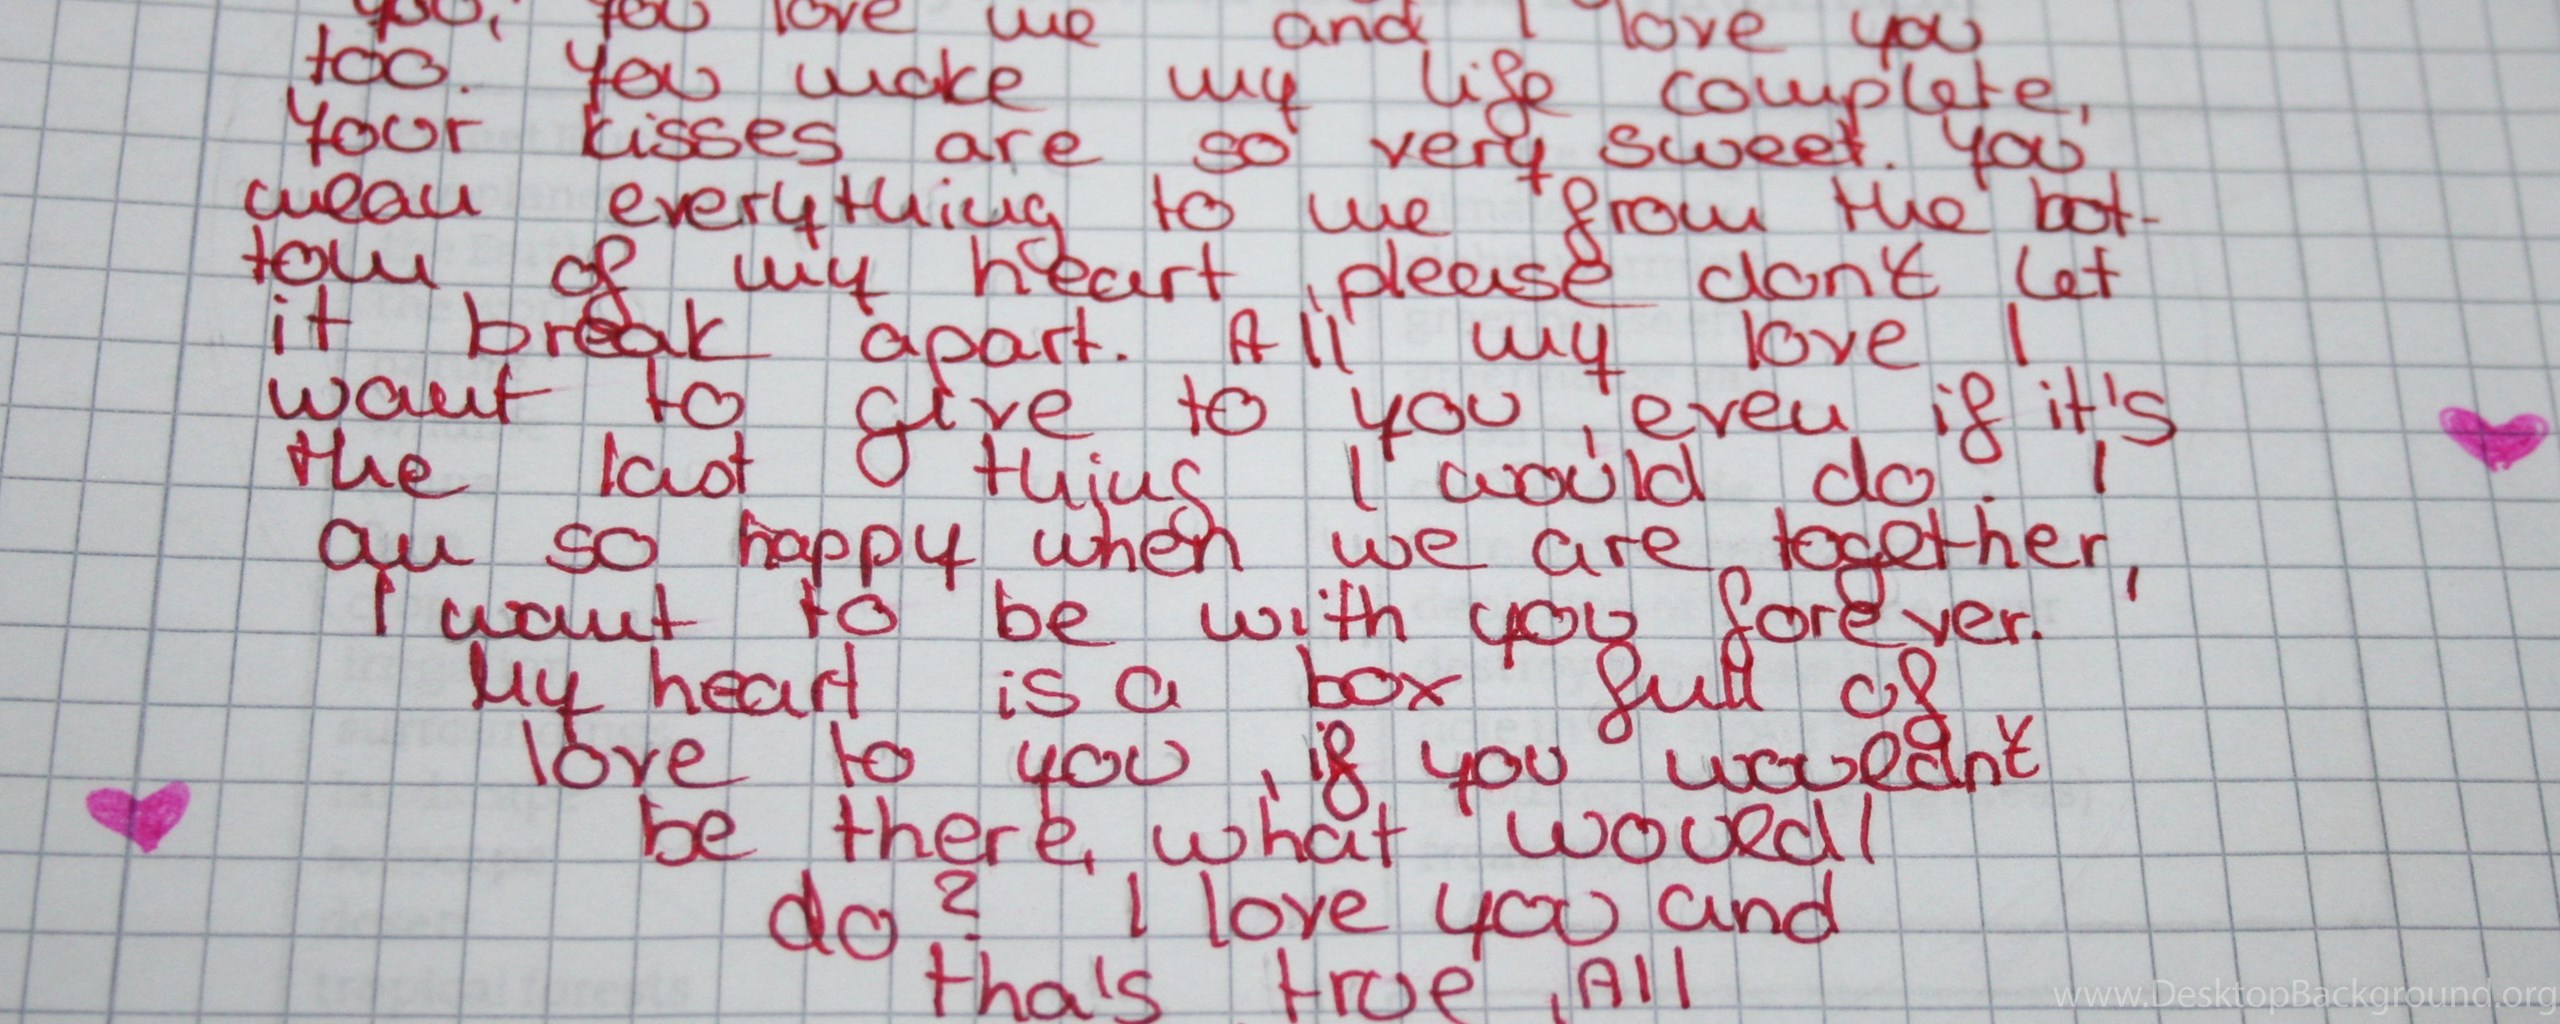 you, you love me and I love you
too. You make my life complete,
Your kisses are so very sweet. You
mean everything to me from the bot-
tom of my heart, please don't let
it break apart. All my love I
want to give to you, even if it's
the last thing I would do. I
am so happy when we are together,
I want to be with you forever.
My heart is a box full of
love to you, if you wouldn't
be there, what would I
do? I love you and
tha's true, All
www.DesktopBackground.org